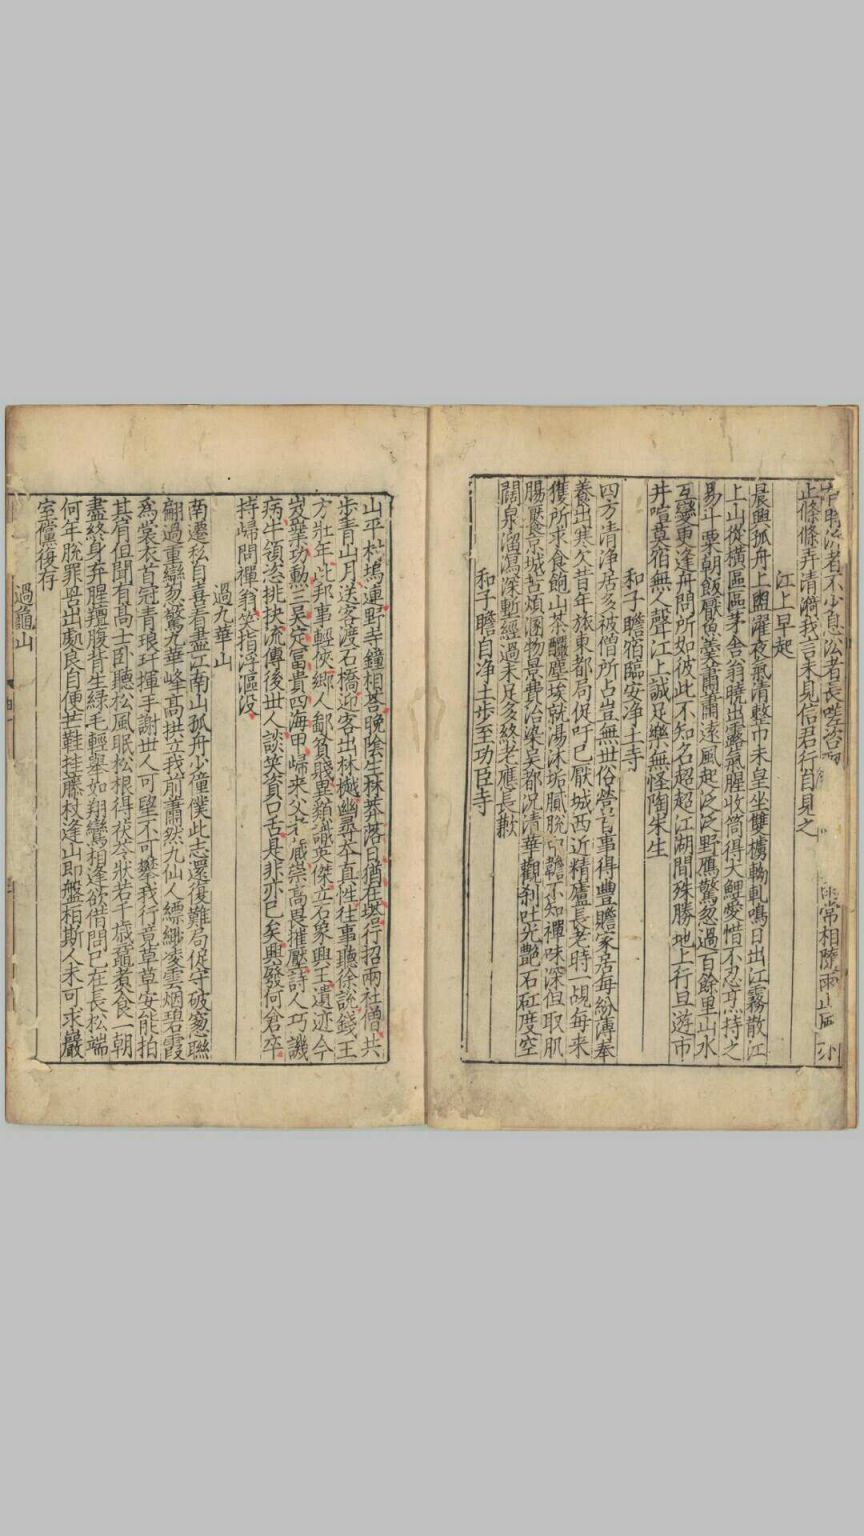 止條條弄清漪我言未見信君行自見之
江上早起
晨興孤舟上盥濯夜氣清整巾未皇坐雙櫓軋鳴日出江霧散江
上山從橫區區茅舍翁曉出露氣腥收筒得大鯉愛惜不忍烹持之
易斗粟朝飯厭魚羹肅肅遠風起泛泛野鴈驚忽過百餘里山水
互變更逢舟問所如彼此不知名超超江湖間殊勝地上行旦遊市
井喧莫宿無人聲江上誠足樂無怪陶朱生
和子瞻宿臨安淨土寺
四方清淨居多被僧所占豈無世俗營官事得豐贍家居每紛薄奉
養出寒欠昔年旅東都局促吁已厭城西近精廬長老時一覘每來
獲所求食飽山茶釅塵埃就湯沐垢膩脫巾韂不知禪味深但取肌
腸饜京城苦煩溷物景費治染吳都況清華觀刹吐光艷石矼度空
闊泉溜瀉深塹經過未足多終老應長歉
和子瞻自淨土步至功臣寺
山平村塢連野寺鐘相荅晚陰生林莽落日猶在塔行招兩社僧共
步青山月送客渡石橋迎客出林樾幽尋本真性往事聽徐說錢王
方壯年此邦事輕俠鄉人鄙貧賤異類識英傑立石象興王遺迹今
岌嶪功勳三吳定富貴四海甲歸來父老藏崇高畏摧壓詩人巧譏
病牛領恣挑抉流傳後世人談笑資口舌是非亦已矣興廢何倉卒
持歸問禪翁笑指浮漚没
過九華山
南遷私自喜看盡江南山孤舟少僮僕此志還復難局促守破窓聯
翩過重巒忽驚九華峰髙拱立我前蕭然九仙人縹緲凌雲烟碧霞
爲裳衣首冠青琅玕揮手謝世人可望不可攀我行竟草草安能拍
其肩但聞有髙士卧聽松風眠松根得茯苓狀若千歲黿煮食一朝
盡終身弃腥羶腹背生緑毛輕舉如翔鸞相逢欲借問已在長松端
何年脫罪罟出處良自便芒鞋挂藤杖逢山即盤桓斯人未可求巖
室儻復存
過龜山